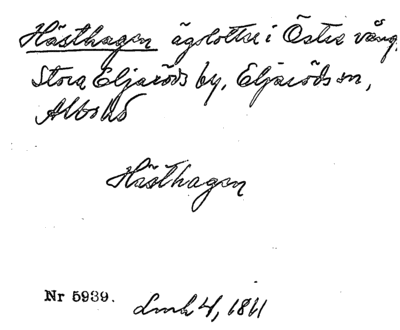 Hästhagen ägolotter i Östra vång,
Stora Eljaröds by, Eljaröds sn,
Albo hd
Hästhagen
Nr 5939.
Lmh 4, 1811